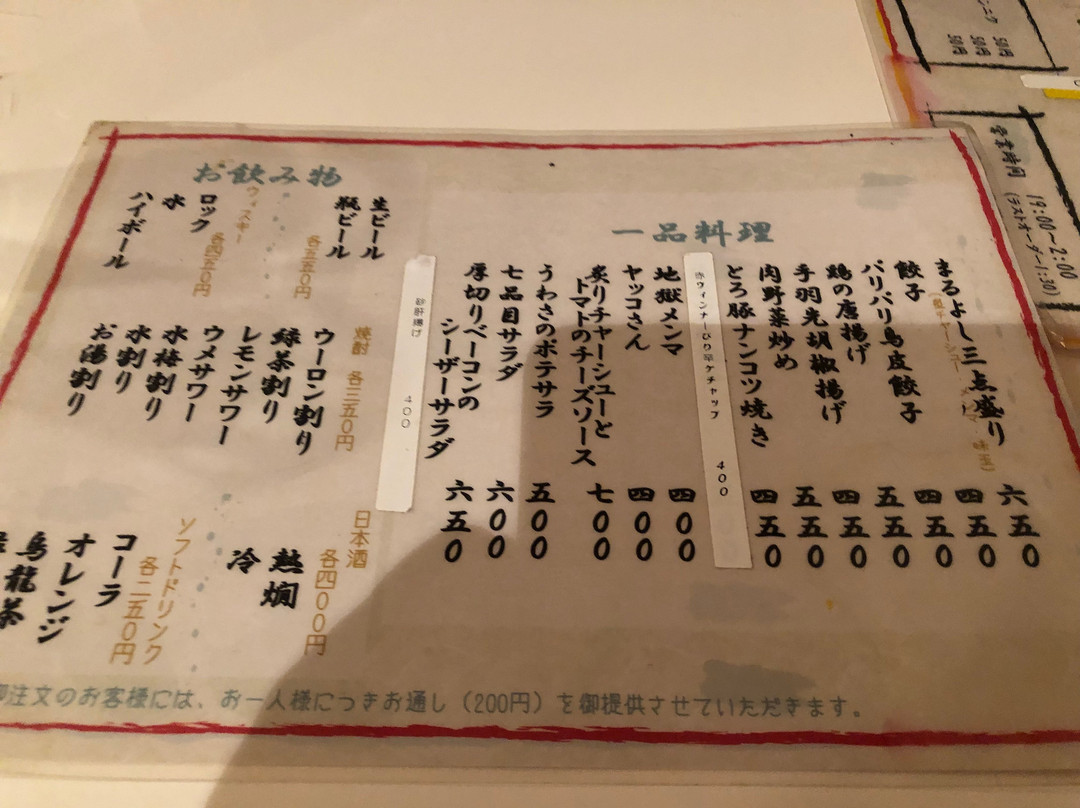 一品料理
まるよし三点盛り 六五〇
餃子 四五〇
パリパリ鳥皮餃子 四五〇
鶏の唐揚げ 五五〇
手羽先胡椒揚げ 四五〇
肉野菜炒め 五五〇
とろ豚ナンコツ焼き 四五〇
赤ウィンナーぴり辛ケチャップ 400
地獄メンマ 四〇〇
ヤッコさん 四〇〇
炙りチャーシューと
トマトのチーズソース 七〇〇
うわさのポテサラ 五〇〇
七品目サラダ 六〇〇
厚切りベーコンの
シーザーサラダ 六五〇
砂肝揚げ 400
お飲み物
生ビール
瓶ビール
各五五〇円
ウィスキー
各四五〇円
ロック
水
ハイボール
焼酎 各三五〇円
ウーロン割り
緑茶割り
レモンサワー
ウメサワー
水梅割り
水割り
お湯割り
日本酒
各四〇〇円
熱燗
冷
ソフトドリンク
各二五〇円
コーラ
オレンジ
烏龍茶
注文のお客様には、お一人様につきお通し（200円）を御提供させていただきます。
50円
50円
50円
営業時間 19:00~2:00
(ラストオーダー1:30)